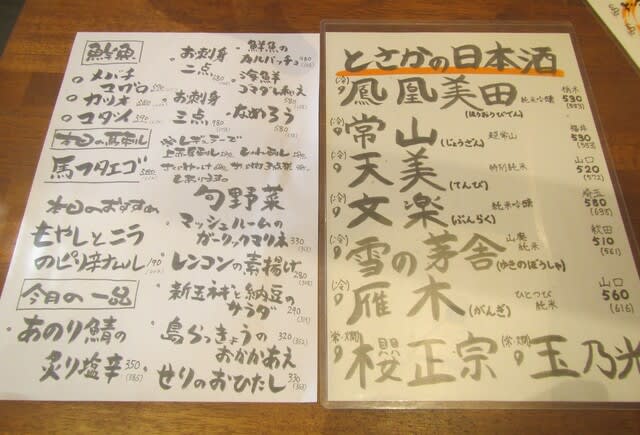 鮮魚
メバチ
マグロ
カツオ
コダイ
390
本日の馬刺し
馬フタエゴ
本日のおすすめ
もやしとニラ
のピリ辛ナムル
今月の一品
あのり鯖の
炙り塩辛 350
(385)
お刺身
二点
お刺身
三点
980
鮮魚の
カルパッチョ
海鮮
コマダレあえ
580
なめろう
580
旬野菜
マッシュルームの
ガーリックマリネ 330
レンコンの素揚げ
280
新玉ネギと納豆の
サラダ 290
島らっきょうの 320 (352)
おかかあえ
せりのおひたし 330
(363)
とさかの日本酒
(冷) 鳳凰美田 純米吟醸 栃木 530 (583)
(ほうおうびでん)
常山 超常山 福井 530 (583)
(じょうざん)
(冷) 天美 特別純米 山口 520 (572)
(てんび)
(冷) 文楽 純米吟醸 埼玉 580 (638)
(ぶんらく)
(冷) 雪の茅舎 山廃純米 秋田 510 (561)
(ゆきのぼうしゃ)
(冷) 雁木 ひとつび 純米 山口 560 (616)
(がんぎ)
(常・燗) 櫻正宗 (常・燗) 玉乃光